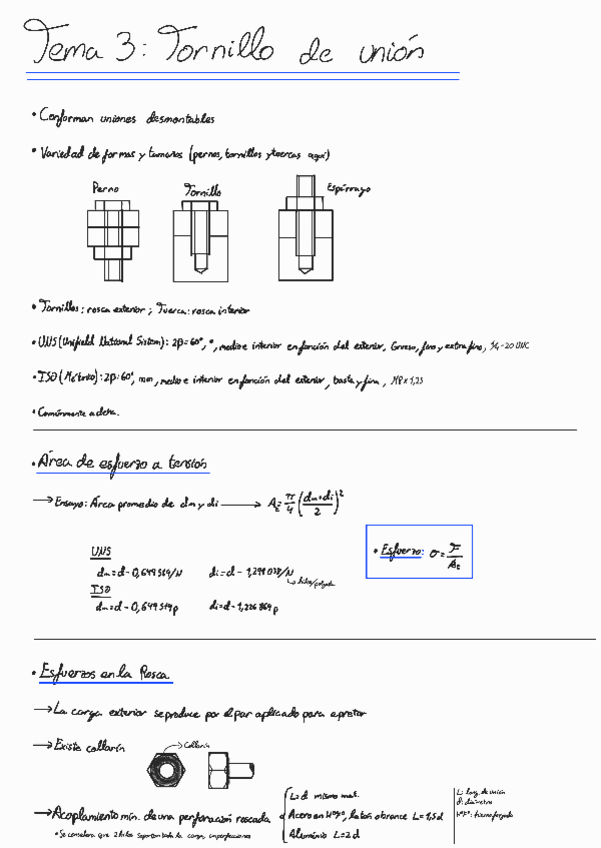 Tema 3: Tornillo de unión
• Conforman uniones desmontables
• Variedad de formas y tamaños (pernos, tornillos y tuercas aquí)
Perno Tornillo Espárrago
• Tornillos: rosca exterior; Tuerca: rosca interior
• UNS (Unifield National Sistem): 2β=60°, ", medio e interior en función del exterior, Grueso, fino y extrafino, 1/4-20 UNC
• ISO (Métrico): 2β:60°, mm, medio e interior en función del exterior, basta y fina, M8x1,25
• Comúnmente a dcha.
• Área de esfuerzo a tensión
→ Ensayo: Área promedio de dm y di → At = π/4 (dm+di/2)²
• Esfuerzo: σ = F/At
UNS
dm=d-0,649519/N di=d-1,299038/N
ISO
dm=d-0,649519p di=d-1,226869p
• Esfuerzos en la Rosca
→ La carga exterior se produce por el par aplicado para apretar
→ Existe collarín
Collarín
→ Acoplamiento mín. de una perforación roscada
L=d mismo mat.
Acero en HºFº, latón o bronce L=1,5d
Aluminio L=2d
L: long. de unión
d: diámetro
HºFº: hierro forjado
• Se considera que 2 hilos soportan toda la carga,